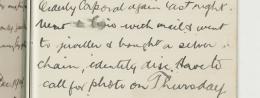 Corporal again last night.
with mail & went
to jeweller & bought a silver
chain, identity disc. Have to
call for photo on Thursday